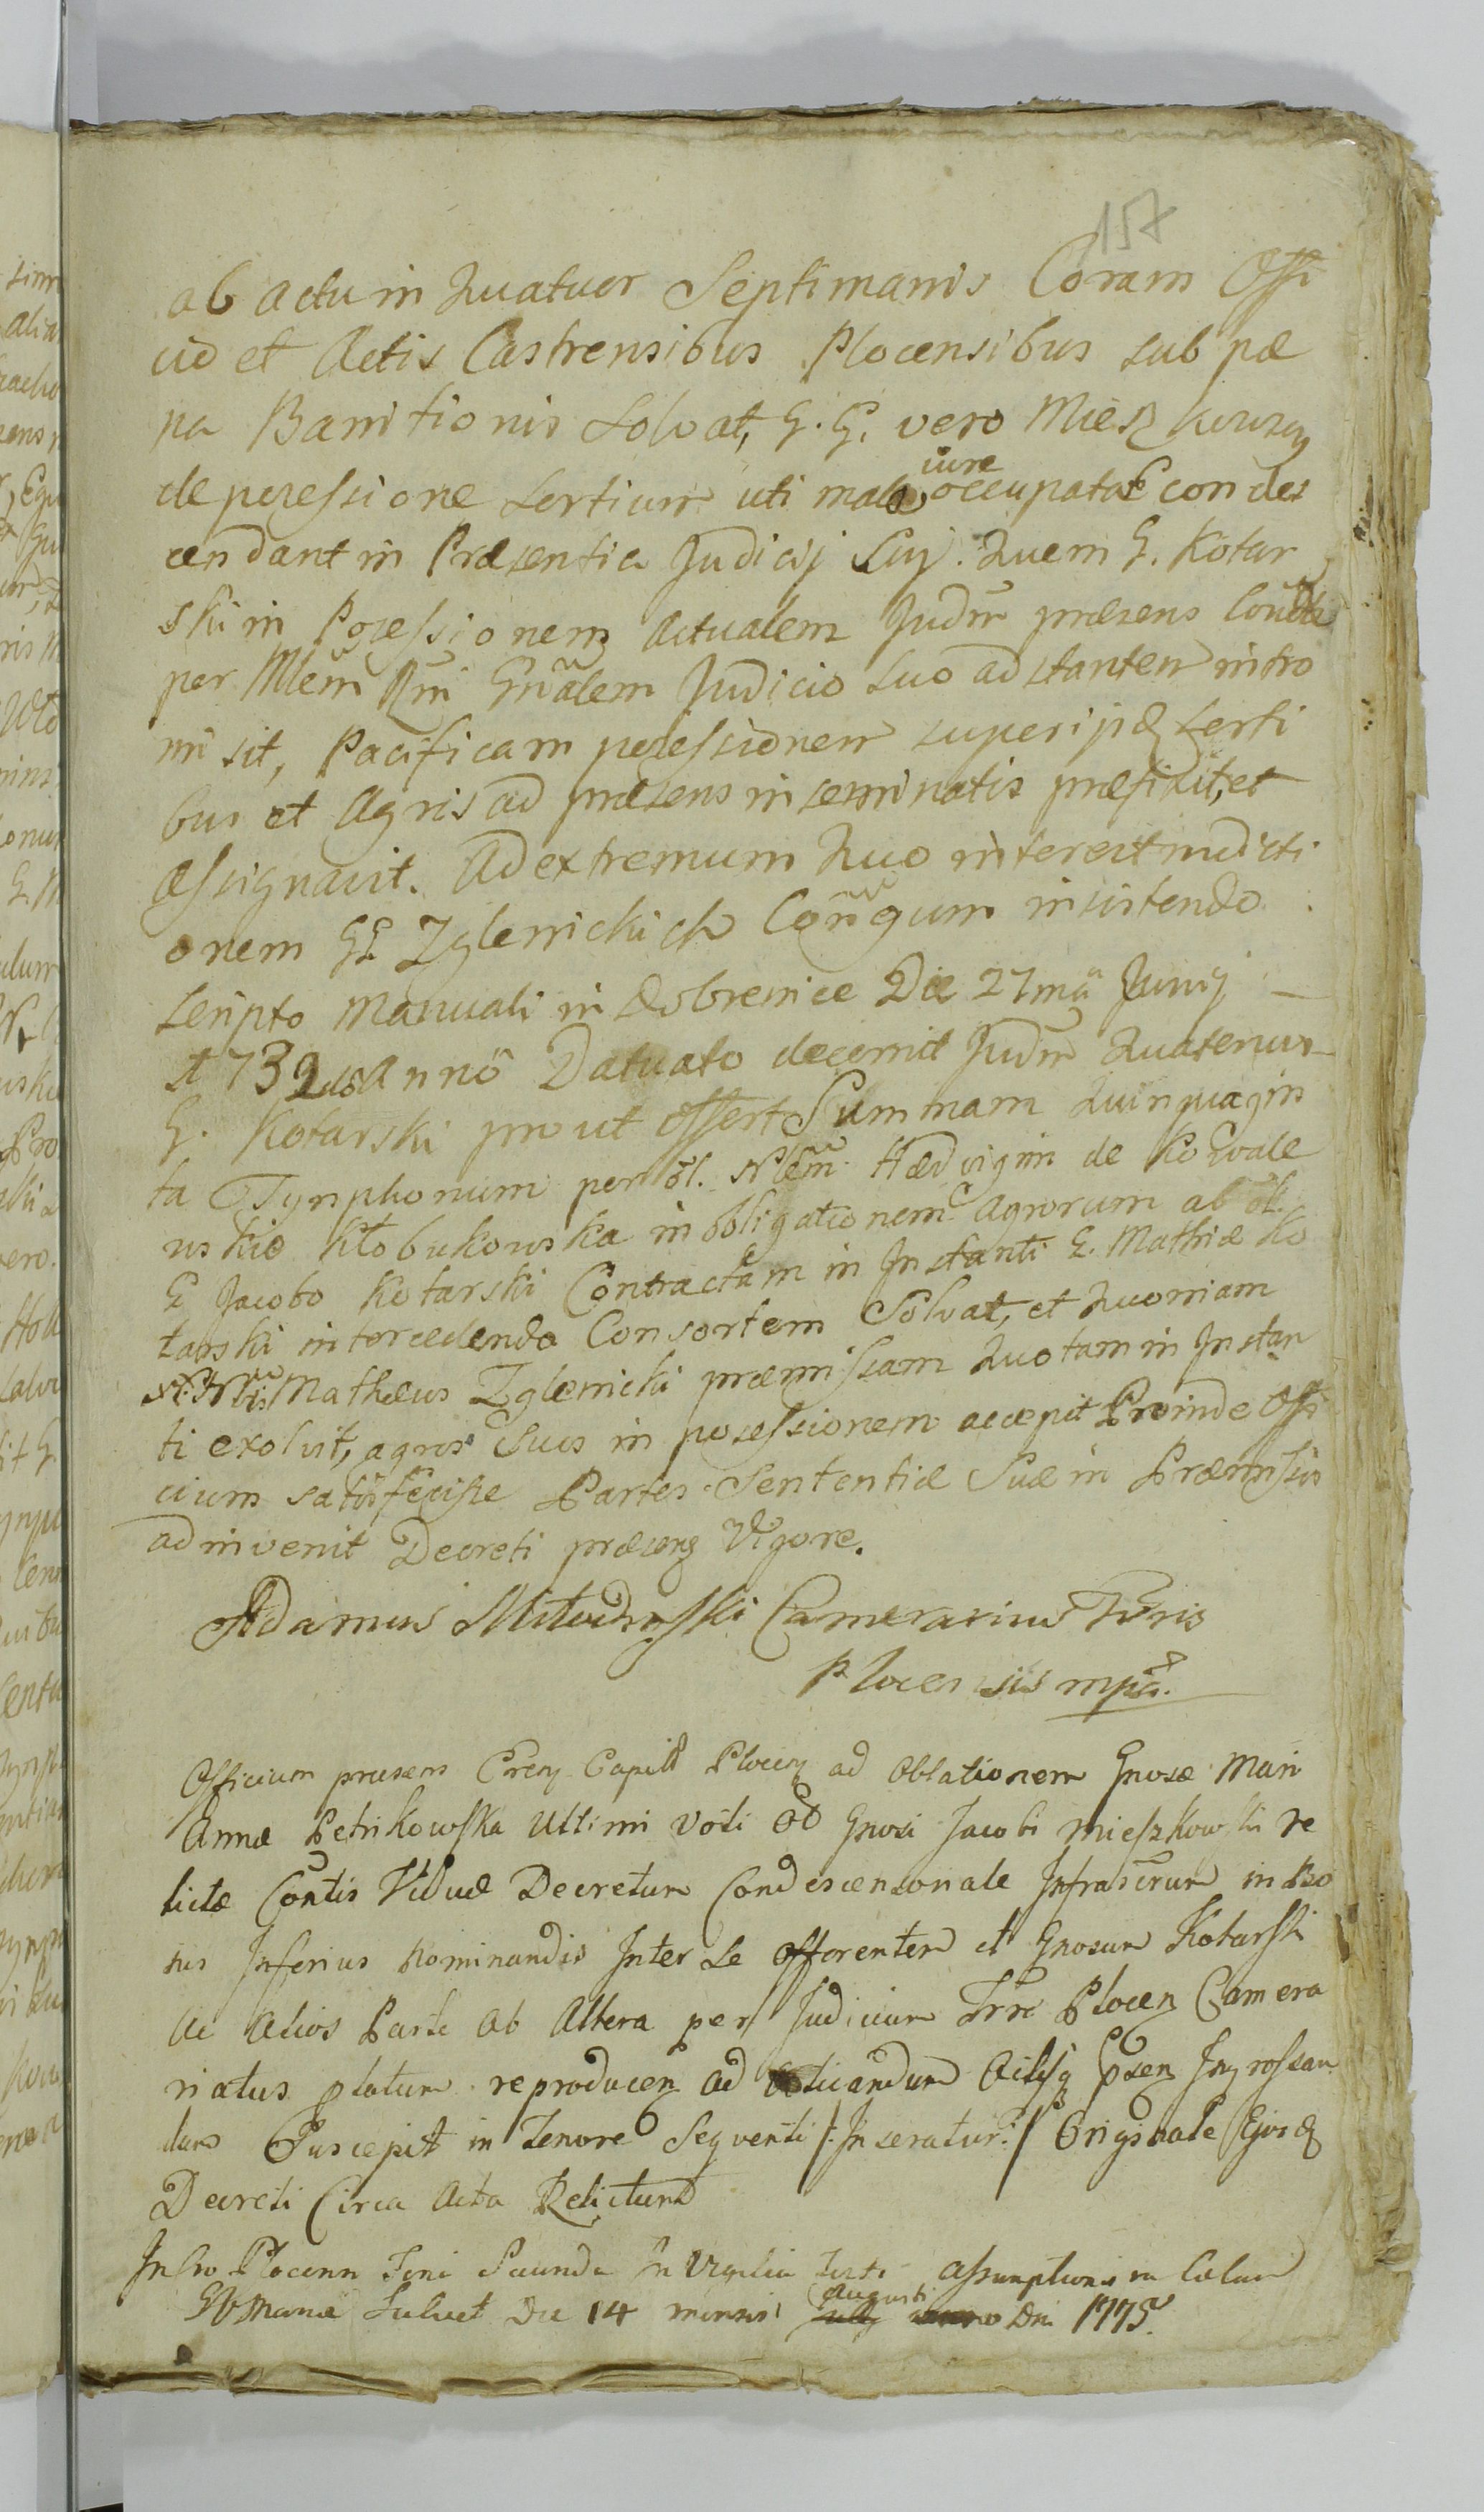 157
ab actu in Quatuor Septimanis Coram Offi
cio et Actis Castrensibus Plocensibus sub pæ
na Bannitionis Solvat, G. G. vero Mieszkowscy
de possessione sortium uti male iure occupatæ condes
cendant in Præsentia Judicij Sui. Quem G. Kotar
ski in Possessionem Actualem Judm præsens
per Mlem Rni Gnalem Judicio suo adstantem intro
misit, Pacificam possessionem super ips sorti
bus et Agris ad præsens inseminatis præfixit, et
assignavit. Ad extremum Quo interest indicti
onem GG Zglenickich insistendo
scripto Manuali in Dobrenice Die 27ma Junij
1732do Anno Datuato decernit Judm Quatenus
G. Kotarski prout offert Summam Quinquagin
ta Tynphonum per ol. Hedvigim de Kowale
wskie Kłobukowska in obligationem Agrorum ab ol.
G Jacobo Kotarski Contractam in Instanti G. Mathiæ Ko
tarski intercedendo Consortem Solvat, et Quoniam
Mathæus Zglenicki præmissam Quotam in Instan
ti exolvit, agros Suos in possessionem accepit Proinde Offi
cium satisfecisse Partes Sententiæ Suæ in Præmissis
adinvenit Decreti præsens Vigore.
Adamus Miłodroski Camerarius Trris
Plocensis mpa.
Officium præsens Cren Capitl Plocen ad Oblationem Gnosæ Mari
Annæ Petrikowska Ultimi Voti Gnosi Jacobi Mieszkowski re
lictæ Contis Viduæ Decretum Condescensionale Infrascrum in Bo
nis Inferius Nominandis Inter Se Offerentem et Gnosum Kotarski
Ac Alios Parte Ab Altera per Judicium Trre Plocen Camera
riatus platum reproducen ad Actisq psen Ingrossan
dum Suscepit in Tenore Seqventi /: Inseratur :/ Originale Ejusd
Decreti Circa Acta Relictum
In Cro Plocenn Feria Secunda In Vigilia Festi Assumptionis in Cælum
BVMariæ Scilicet Die 14 mensis Augusti Dni 1775.